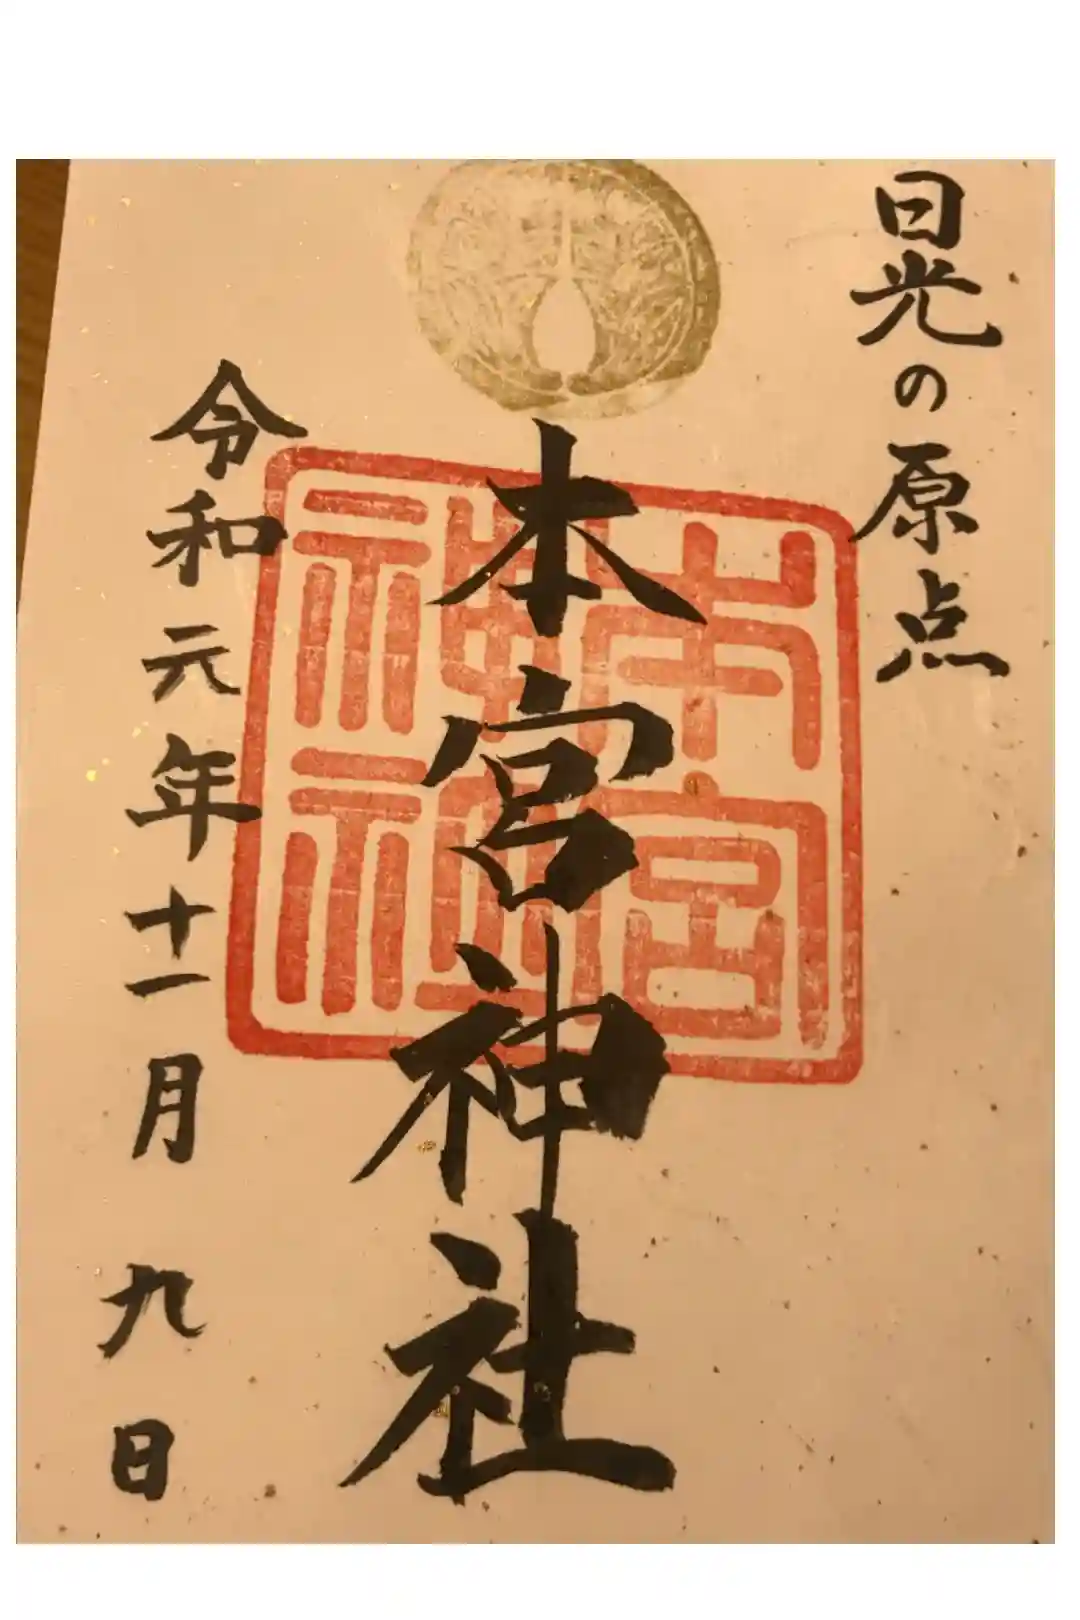 日光の原点
本宮神社
本宮
神社
令和元年十一月九日